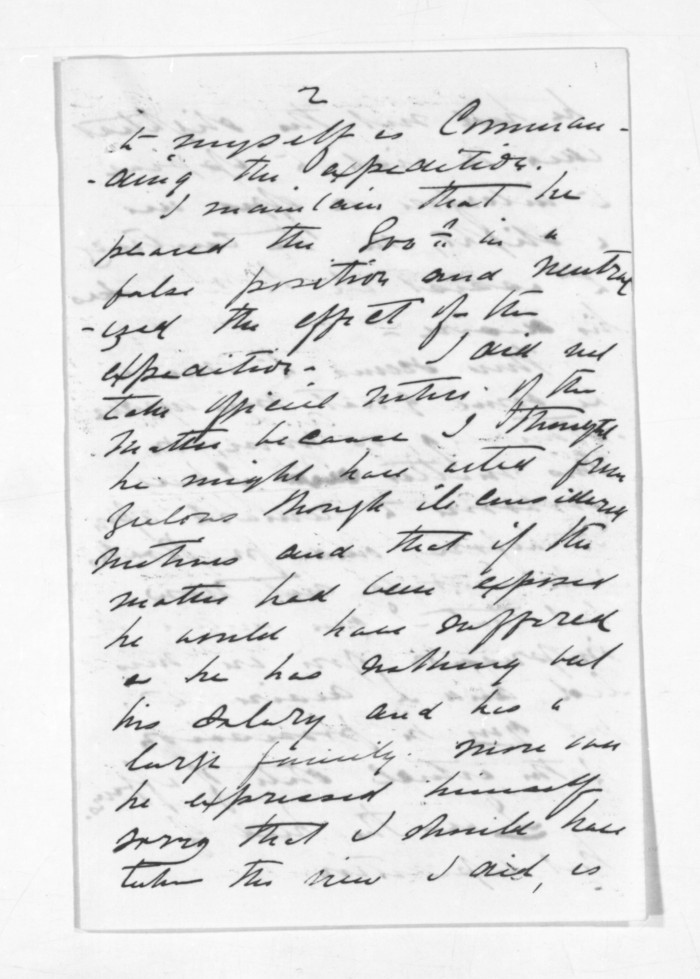 2
to myself as Comman-
-ding the expedition.
I maintain that he
placed the Govt in a
false position and neutral
-ized the effect of the
expedition. I did not
take official notice of the
matter because I thought
he might have acted from
zealous though ill considered
motives and that if the
matter had been exposed
he would have suffered
& he has nothing but
his salary and has a
large family. More over
he expressed himself
sorry that I should have
taken the view I did, is